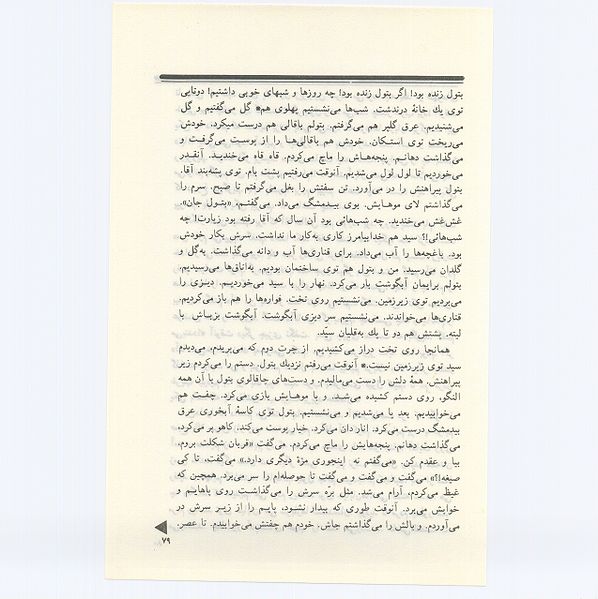 بتول زنده بود! اگر بتول زنده بود! چه روزها و شبهای خوبی داشتیم! دوتایی
توی یك خانهٔ درندشت. شب‌ها می‌نشستیم پهلوی هم* گل می‌گفتیم و گل
می‌شنیدیم. عرق گلپر هم می‌گرفتم. بتولم باقالی هم درست میکرد. خودش
می‌ریخت توی استکان. خودش هم باقالی‌ها را از پوست می‌گرفت و
می‌گذاشت دهانم. پنجه‌هاش را ماچ می‌کردم. قاه قاه می‌خندید. آنقدر
می‌خوردیم تا لول لول می‌شدیم. آنوقت می‌رفتیم پشت بام. توی پشه‌بند آقا.
بتول پیراهنش را در می‌آورد. تن سفتش را بغل می‌گرفتم تا صبح. سرم را
می‌گذاشتم لای موهایش. بوی بیدمشگ می‌داد. می‌گفتم. «بتول جان».
غش‌غش می‌خندید. چه شب‌هائی بود آن سال که آقا رفته بود زیارت! چه
شب‌هائی!؟ سید هم خدابیامرز کاری به‌کار ما نداشت. سرش بکار خودش
بود. باغچه‌ها را آب می‌داد. برای قناری‌ها آب و دانه می‌گذاشت. به‌گل و
گلدان می‌رسید. من و بتول هم توی ساختمان بودیم. به‌اتاق‌ها می‌رسیدیم.
بتول برایمان آبگوشت بار می‌کرد. نهار را با سید می‌خوردیم. دیزی را
می‌بردیم توی زیرزمین. می‌نشستیم روی تخت. فواره‌ها را هم باز می‌کردیم.
قناری‌ها می‌خواندند. می‌نشستیم سر دیزی آبگوشت. آبگوشت بزباش با
لپته. پشتش هم دو تا پك به‌قلیان سیّد.
همانجا روی تخت دراز می‌کشیدیم. از چرت دوم که می‌پریدم، می‌دیدم
سید توی زیرزمین نیست.* آنوقت می‌رفتم نزدیك بتول. دستم را می‌کردم زیر
پیراهنش. همهٔ دلش را دست می‌مالیدم. و دست‌های چاقالوی بتول با آن همه
النگو، روی دستم کشیده می‌شد. و با موهایش بازی می‌کرد. جفت هم
می‌خوابیدیم. بعد پا می‌شدیم و می‌نشستیم. بتول توی کاسهٔ آبخوری عرق
بیدمشگ درست می‌کرد. انار دان می‌کرد. خیار پوست می‌کند. کاهو پر می‌کرد،
می‌گذاشت دهانم. پنجه‌هایش را ماچ می‌کردم. می‌گفت «قربان شکلت بروم.
بیا و عقدم کن. «می‌گفتم نه اینجوری مزهٔ دیگری دارد.» می‌گفت، تا کی
صیغه!؟» می‌گفت و می‌گفت و می‌گفت تا حوصله‌ام را سر می‌برد. همچین که
غیظ می‌کردم، آرام می‌شد. مثل برّه سرش را می‌گذاشت روی پاهایم و
خوابش می‌برد. آنوقت طوری که بیدار نشود، پایم را از زیر سرش در
می‌آوردم. و بالش را می‌گذاشتم جاش. خودم هم جفتش می‌خوابیدم. تا عصر.
۷۹